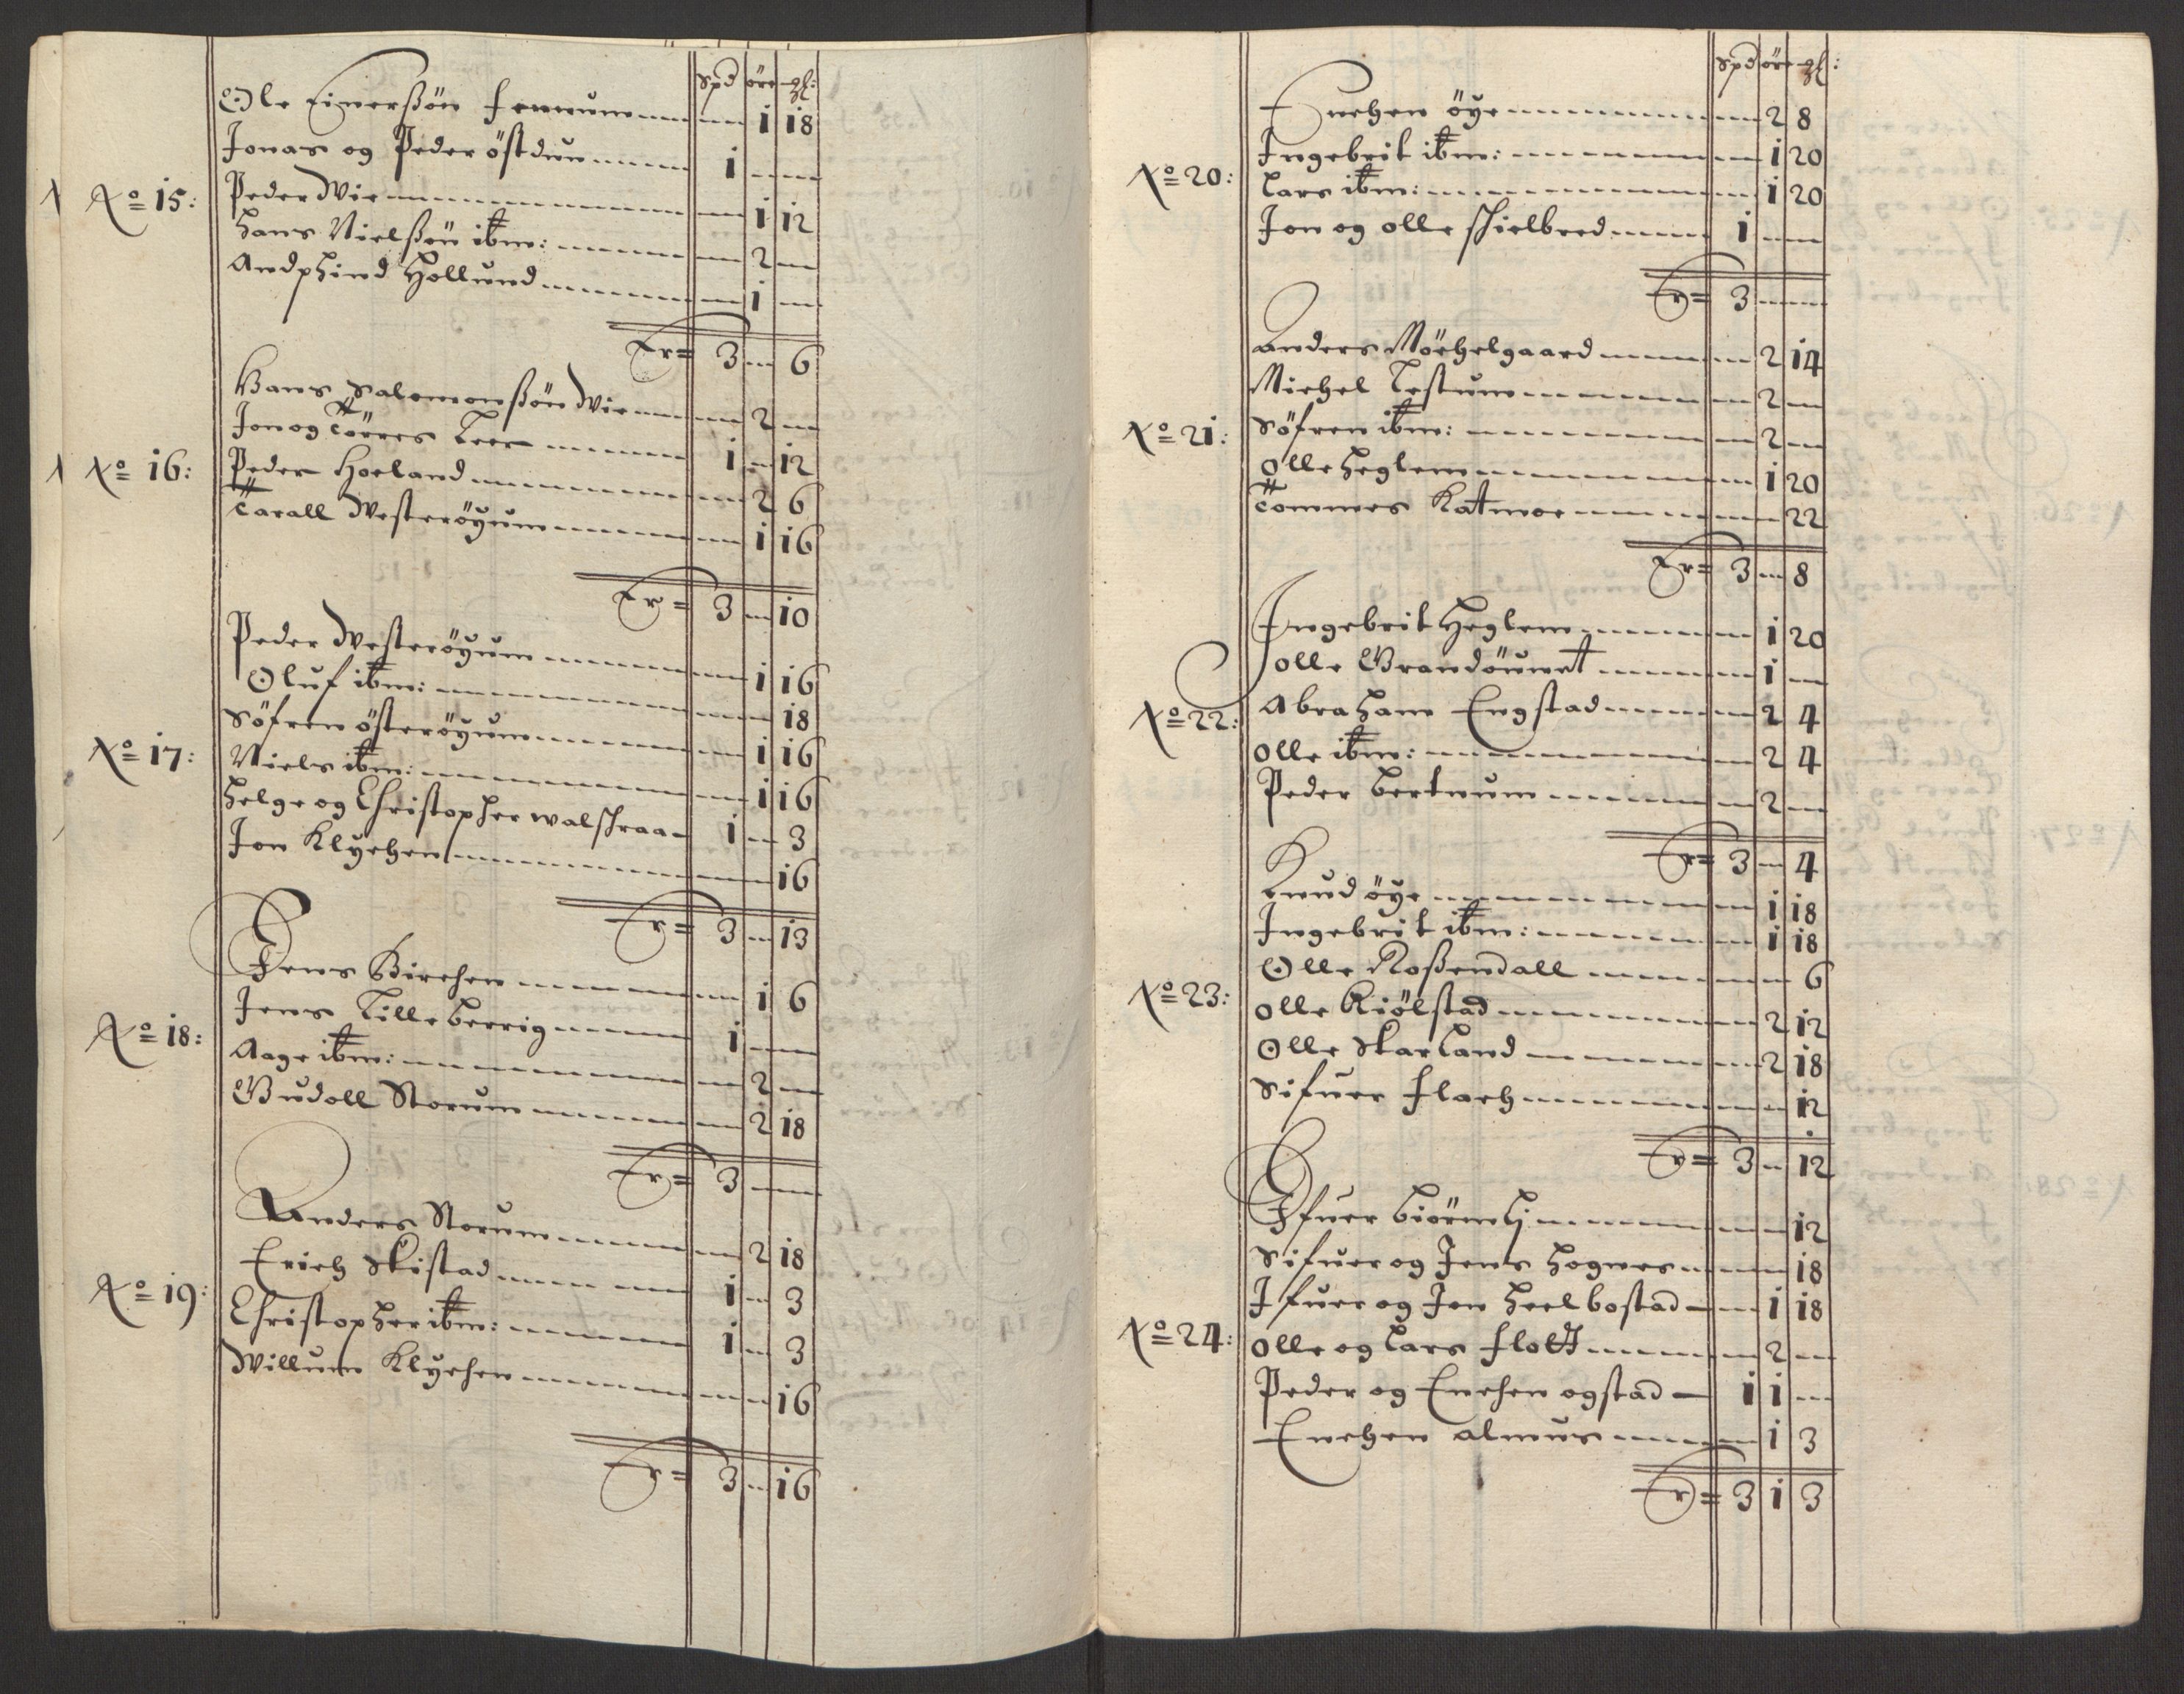 Spd öre gl:
Ole Einerßön Fennum 1 18
Jonas og Peder östdun 1
No 15:
Peder Wie 1 12
Hans Nielßön ibm: 2
Andphind Hollund 1
Er= 3 6
Hans Salomonßön Wie 2
Jon og Törres Leer 1 12
No 16:
Peder Hoeland 2 6
Tarall Westeröyum 1 16
Er= 3 10
Peder Westeröyum 1 16
Oluf ibm: 18
Söfren österöyum 1 16
No 17:
Niels ibm: 1 16
Helge og Christopher walschraa 1 3
Jon Klychen 16
Er= 3 13
Jens Birchen 1 6
Jens Lilleberrig 1
No 18:
Aage ibm: 2
Gudoll Storum 2 18
Er= 3
Anders Storum 2 18
Erich Skistad 1 3
No 19:
Christopher ibm: 1 3
Willum Klychen 16
Er= 3 16
Spd öre gl:
Enchen öye 2 8
Ingebrit ibm: 1 20
No 20:
Lars ibm: 1 20
Jon og olle schielbred 1
Er= 3
Anders Möchelgaard 2 14
Michel Lestum 2
No 21:
Söfren ibm: 2
olle Heglem 1 20
Tommes Katmoe 22
Er= 3 8
Ingebrit Heglem 1 20
olle Grandöunet 1
No 22:
Abraham Engstad 2 4
olle ibm: 2 4
Peder bertnum 2
Er= 3 4
Knud öye 1 18
Ingebrit ibm: 1 18
Olle Roßendall 6
No 23:
olle Kiölstad 2 12
Olle Skarland 2 18
Sifuer Flach 12
Er= 3 12
Ifuer biörnlj 12
Sifuer og Jens Hognes 18
Ifuer og Jon Heelbostad 1 18
No 24:
olle og Lars Flott 2
Peder og Enchen ogstad 1 1
Enchen almus 1 3
Er= 3 1 3